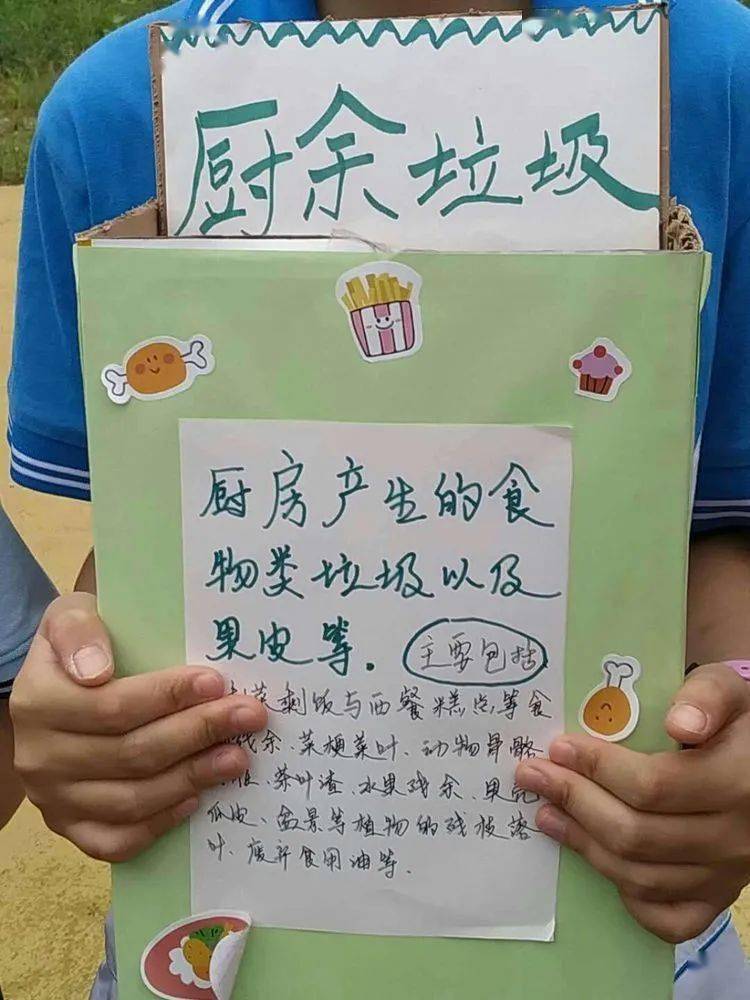 厨余垃圾
厨房产生的食
物类垃圾以及
果皮等.
主要包括
菜剩饭与西餐糕点等食
残余、菜梗菜叶、动物骨骼
、茶叶渣、水果残余、果壳
瓜皮、盆景等植物的残枝落
叶、废弃食用油等.